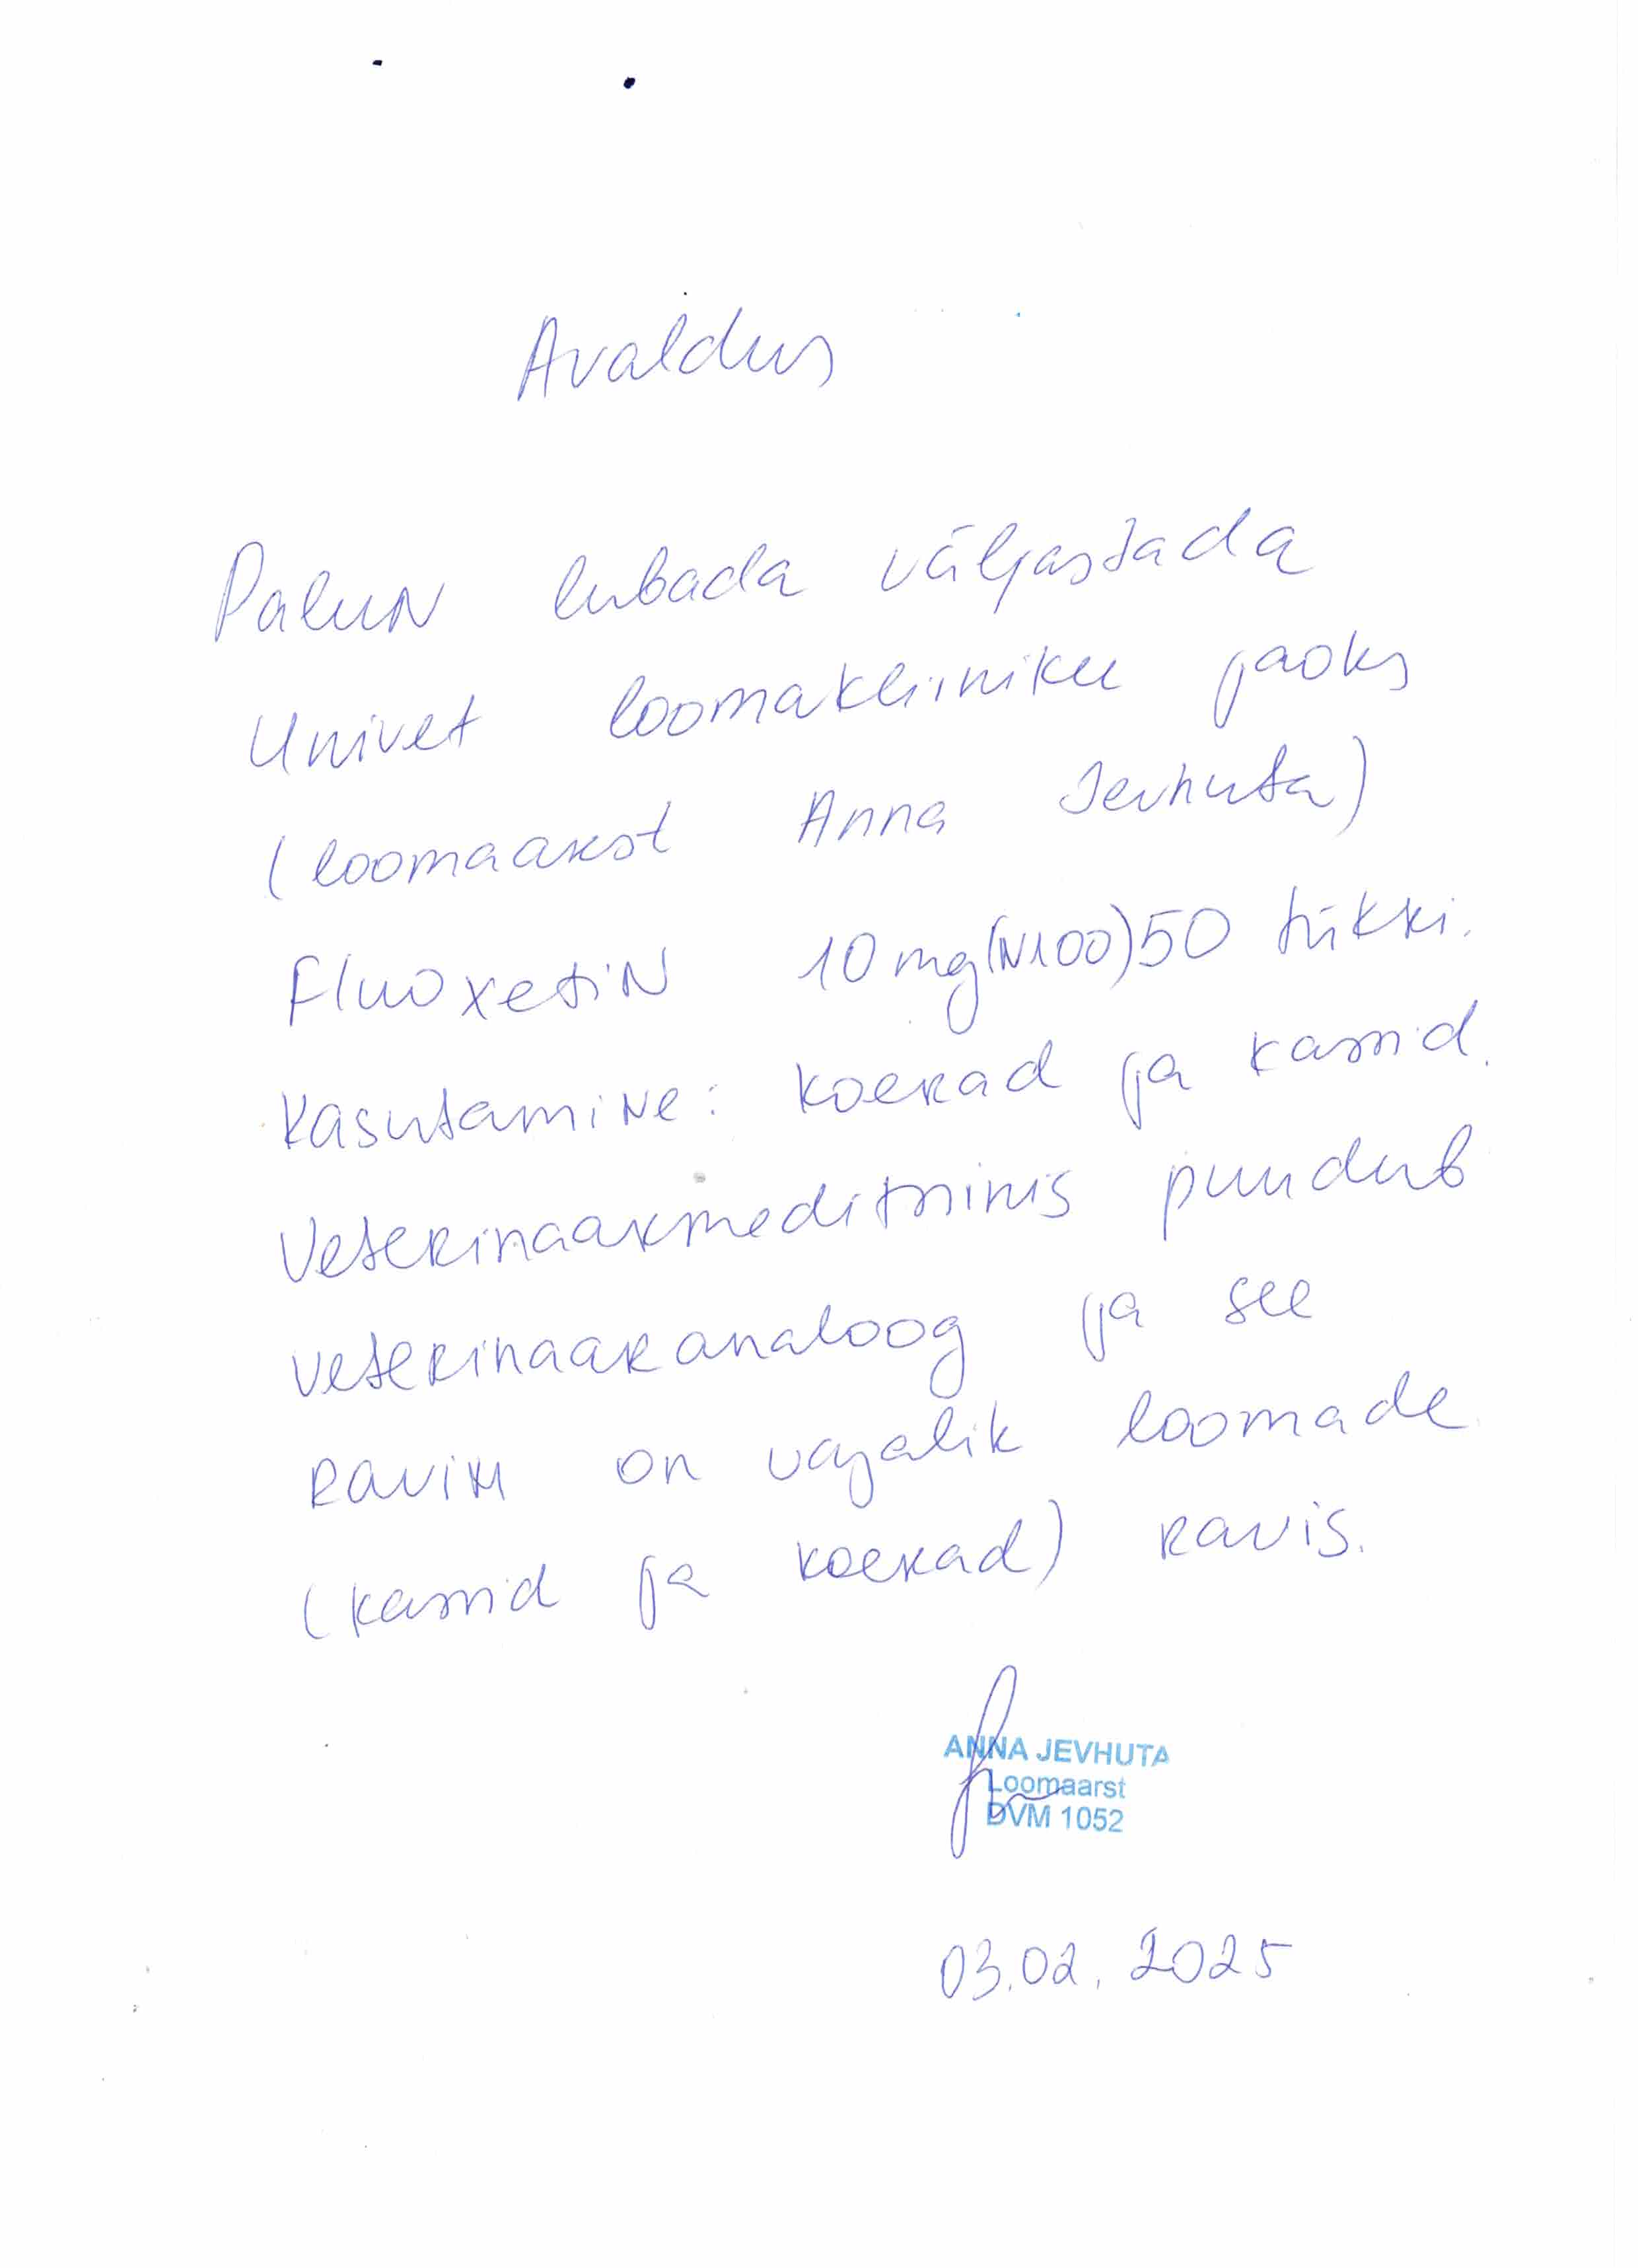 Avaldus
Palun lubada väljastada
Univet loomakliiniku jaoks
(loomaarst Anna Jevhuta)
Fluoxetin 10 mg (N100) 50 tükki.
Kasutamine: koerad ja kassid.
Veterinaarmeditsiinis puudub
veterinaaranaloog ja see
ravim on vajalik loomade
(kassid ja koerad) ravis.
ANNA JEVHUTA
Loomaarst
DVM 1052
03.02.2025